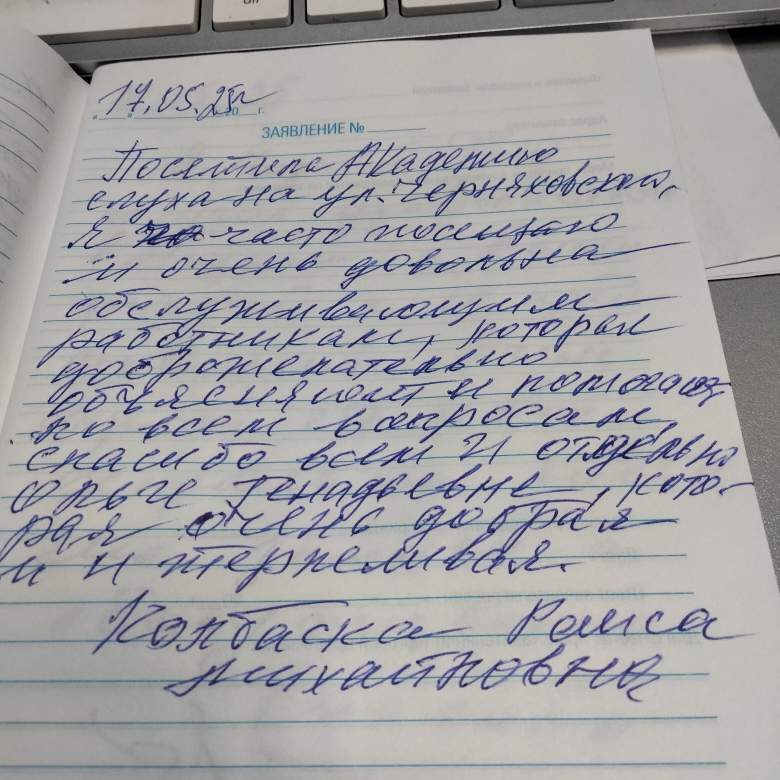 17.05.25г
" " 20 г.
ЗАЯВЛЕНИЕ №
Посетила Академию
слуха на ул. Черняховского,
я часто посещаю
и очень довольна
обслуживающим
работникам, которая
доброжелательно
объясняют и помогают
по всем вопросам,
спасибо всем и отдельно
Ольге Генадьевне, кото-
рая очень добрая
и и терпеливая.
Колбаска Раиса
Михайловна